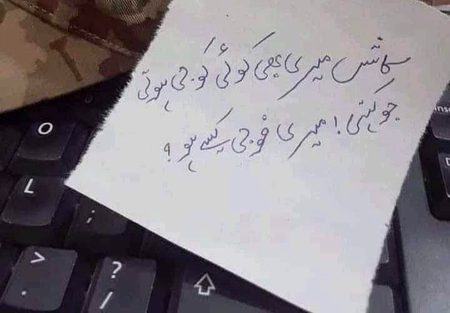 کاش میری بھی کوئی کوجی ہوتی
جو کہتی! میری فوجی کیسے ہو؟
O
L
: ;
> .
? /